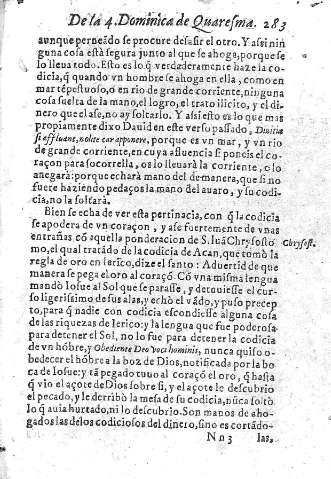 De la 4. Dominica de Quaresma. 283
aunque perneãdo se procure desasir el otro. Y assi nin
guna cosa està segura junto al que se ahoga, porque se
lo lleua todo. Esto es lo q̃ verdaderamente haze la co-
dicia, q̃ quando vn hombre se ahoga en ella, como en
mar tẽpestuoso, o en rio de grande corriente, ninguna
cosa suelta de la mano, el logro, el trato ilicito, y el di-
nero que el ase, no ay soltarlo. Y assi esto es lo que mas
propiamente dixo Dauid en este verso passado, Diuitiæ
si affluant, nolite cor apponere, porque es vn mar, y vn rio
de grande corriente, en cuya afluencia si poneis el co-
raçon para socorrella, os lo lleuarà la corriente, o lo
anegarà: porque echarà mano del de manera, que si no
fuere haziendo pedaços la mano del auaro, y su codi-
cia, no la soltarà.
Bien se echa de ver esta pertinacia, con q̃ la codicia
se apodera de vn coraçon, y ase fuertemente de vnas
entrañas cõ aquella ponderacion de S. Iuã Chrysosto
Chrysost.
mo, el qual tratãdo de la codicia de Acan, que tomò la
regla de oro en Ierico, dize el santo: Aduertid de que
manera se pega el oro al coraçõ. Cõ vna misma lengua
mandò Iosue al Sol que se parasse, y detouiesse el cur-
so ligerissimo de sus alas, y echò el vãdo, y puso precep
to, para q̃ nadie con codicia escondiesse alguna cosa
de las riquezas de Ierico; y la lengua que fue poderosa
para detener el Sol, no lo fue para detener la codicia
de vn hõbre, y Obediente Deo voci hominis, nunca quiso o-
bedecer el hõbre a la boz de Dios, notificada por la bo
ca de Iosue: y tã pegado tuuo al coraçõ el oro, q̃ hasta
q̃ vio el açote de Dios sobre si, y el açote le descubrio
el pecado, y le derribò la mesa de su codicia, nũca soltò
lo q̃ auia hurtado, ni lo descubrio. Son manos de aho-
gados las de los codiciosos del dinero, sino es cortádo-
Nn3 las,